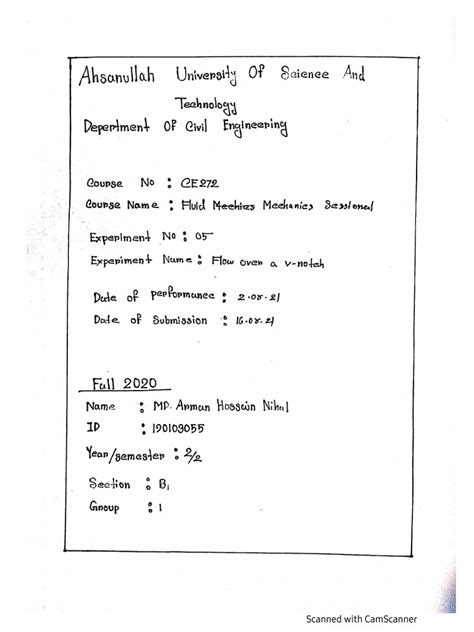 Ahsanullah University Of Science And
Technology
Depertment Of Civil Engineering
Course No : CE272
Course Name : Fluid Mechics Mechanics Sessional
Experiment No : 05
Experiment Name : Flow over a v-notch
Date of performance : 2.08.21
Date of Submission : 16.08.21
Fall 2020
Name : MD. Arman Hossain Nihal
ID : 190103055
Year/semester : 2/2
Section : B1
Group : 1
Scanned with CamScanner